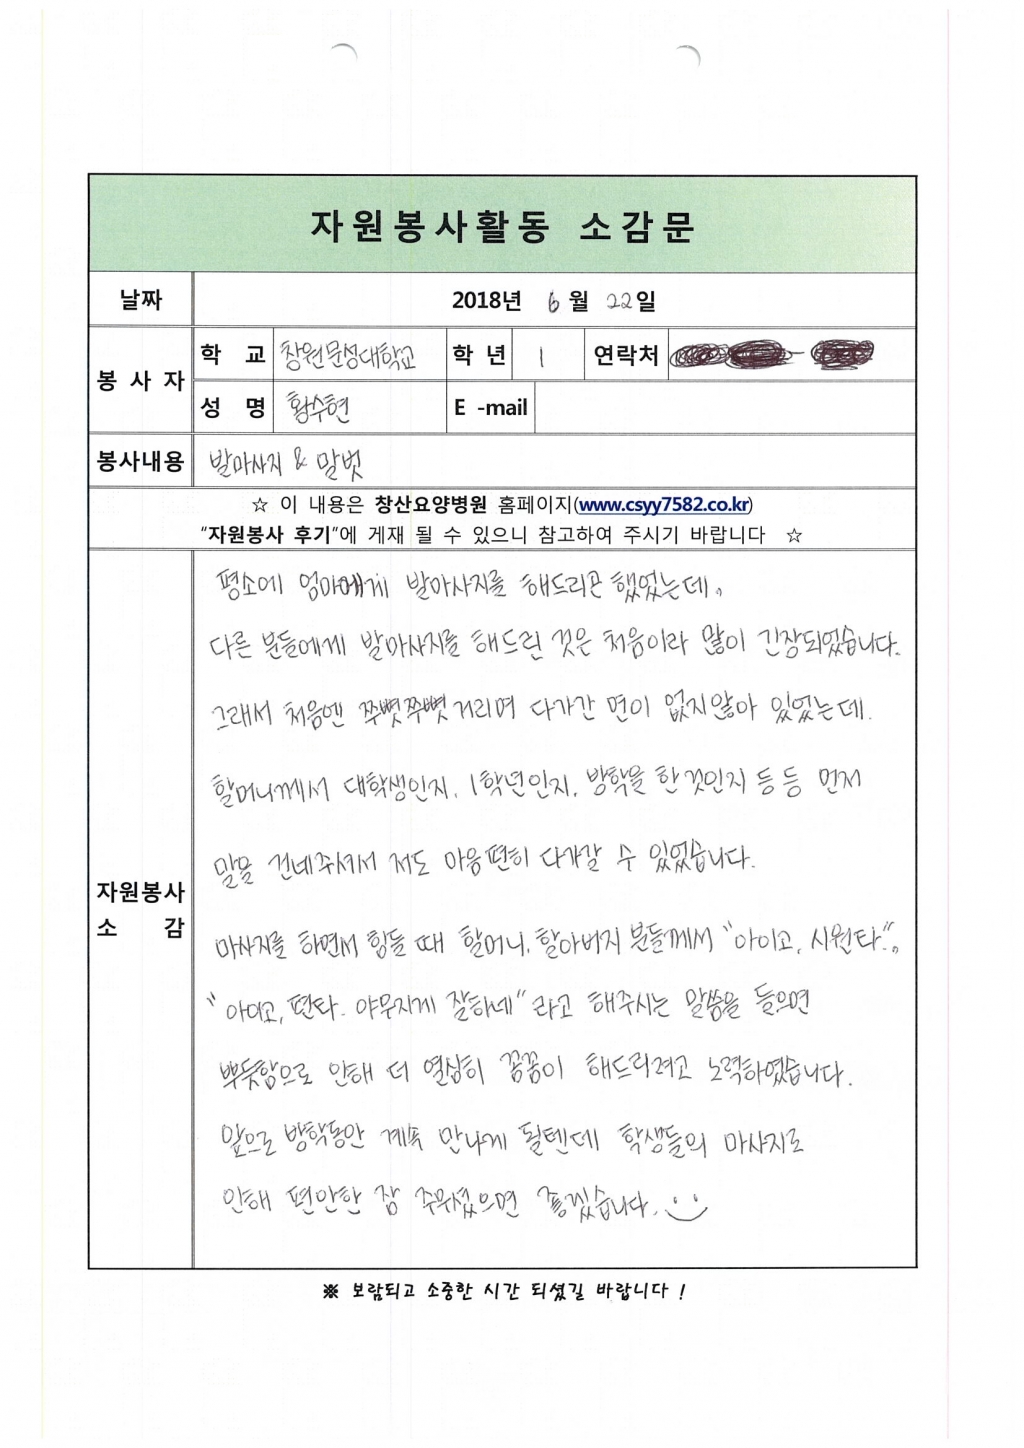 자원봉사활동 소감문
날짜 2018년 6월 22일
봉사자
학 교 창원문성대학교 학년 1 연락처
성 명 황수현 E -mail
봉사내용 발마사지 & 말벗
☆ 이 내용은 창산요양병원 홈페이지(www.csyy7582.co.kr)
“자원봉사 후기”에 게재 될 수 있으니 참고하여 주시기 바랍니다 ☆
자원봉사
소 감
평소에 엄마에게 발마사지를 해드리곤 했었는데,
다른 분들에게 발마사지를 해드린 것은 처음이라 많이 긴장되었습니다.
그래서 처음엔 쭈뼛쭈뼛거리며 다가간 면이 없지않아 있었는데.
할머니께서 대학생인지, 1학년인지, 방학을 한것인지 등등 먼저
말을 건네주셔서 저도 마음편히 다가갈 수 있었습니다.
마사지를 하면서 힘들 때 할머니, 할아버지 분들께서 “아이고, 시원타.”,
“아이고, 편타. 야무지게 잘하네” 라고 해주시는 말씀을 들으면
뿌듯함으로 인해 더 열심히 꼼꼼이 해드리려고 노력하였습니다.
앞으로 방학동안 계속 만나게 될텐데 학생들의 마사지로
인해 편안한 잠 주무셨으면 좋겠습니다.
※ 보람되고 소중한 시간 되셨길 바랍니다 !